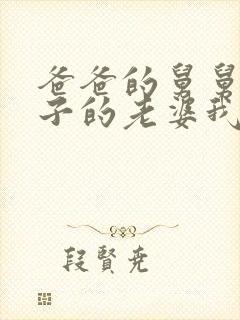 爸爸的舅舅
子的老婆我
段贤尭